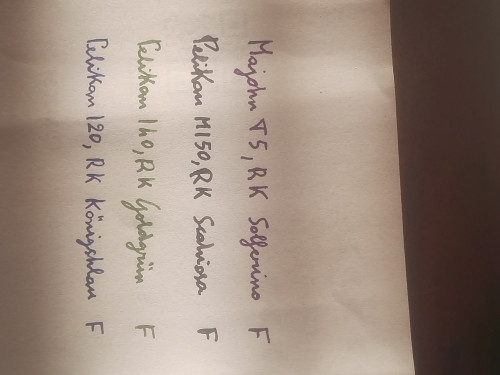 Majohn T5, RK Solferino F
Pelikan M150, RK Scabiosa F
Pelikan 140, RK Goldgrün F
Pelikan 120, RK Königsblau F